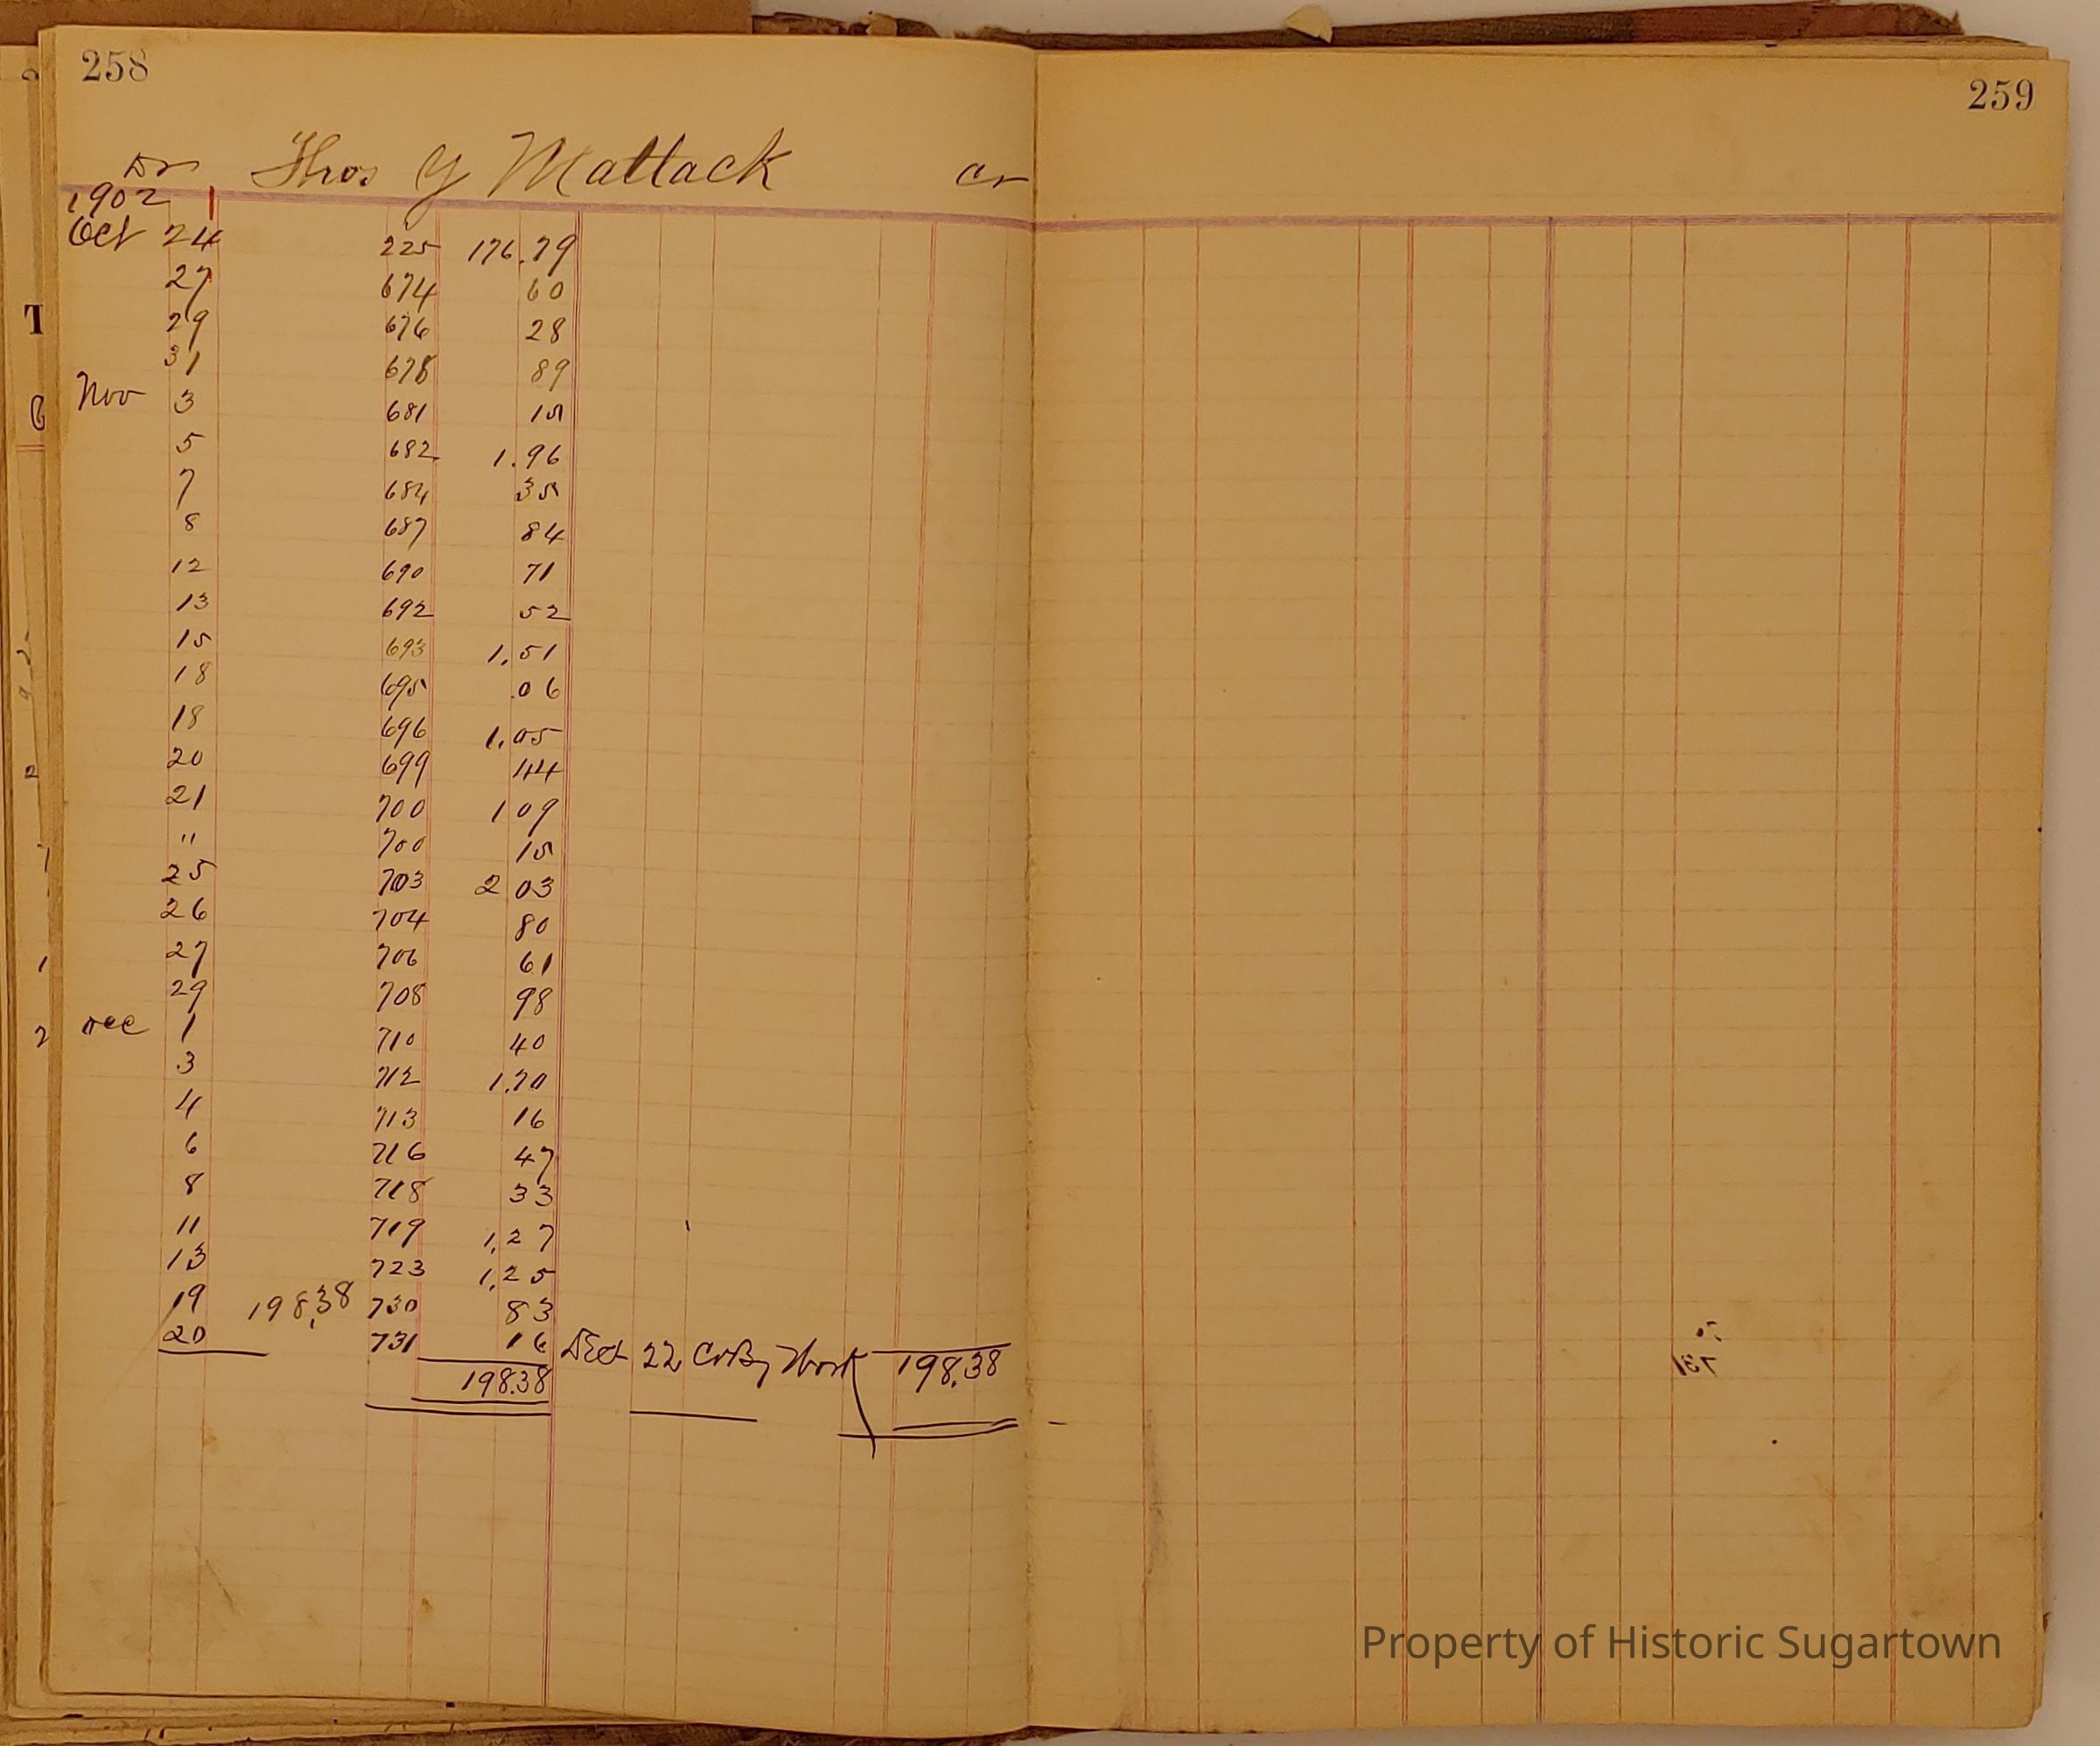 258
259
Dr Thos Y Mattack Cr
1902 1
Oct 24 225 176.79
27 674 60
29 676 28
31 678 89
Nov 3 681 15
5 682 1.96
7 684 35
8 687 84
12 690 71
13 692 52
15 693 1.51
18 695 .06
18 696 1.05
20 699 44
21 700 1 09
" 700 15
25 703 2 03
26 704 80
27 706 61
29 708 98
Dec 1 710 40
3 712 1.70
4 713 16
6 716 47
8 718 33
11 719 1,27
13 723 1,25
19 198,38 730 83
20 731 16 Dec 22 Cr By Work 198.38
198.38
731
Property of Historic Sugartown